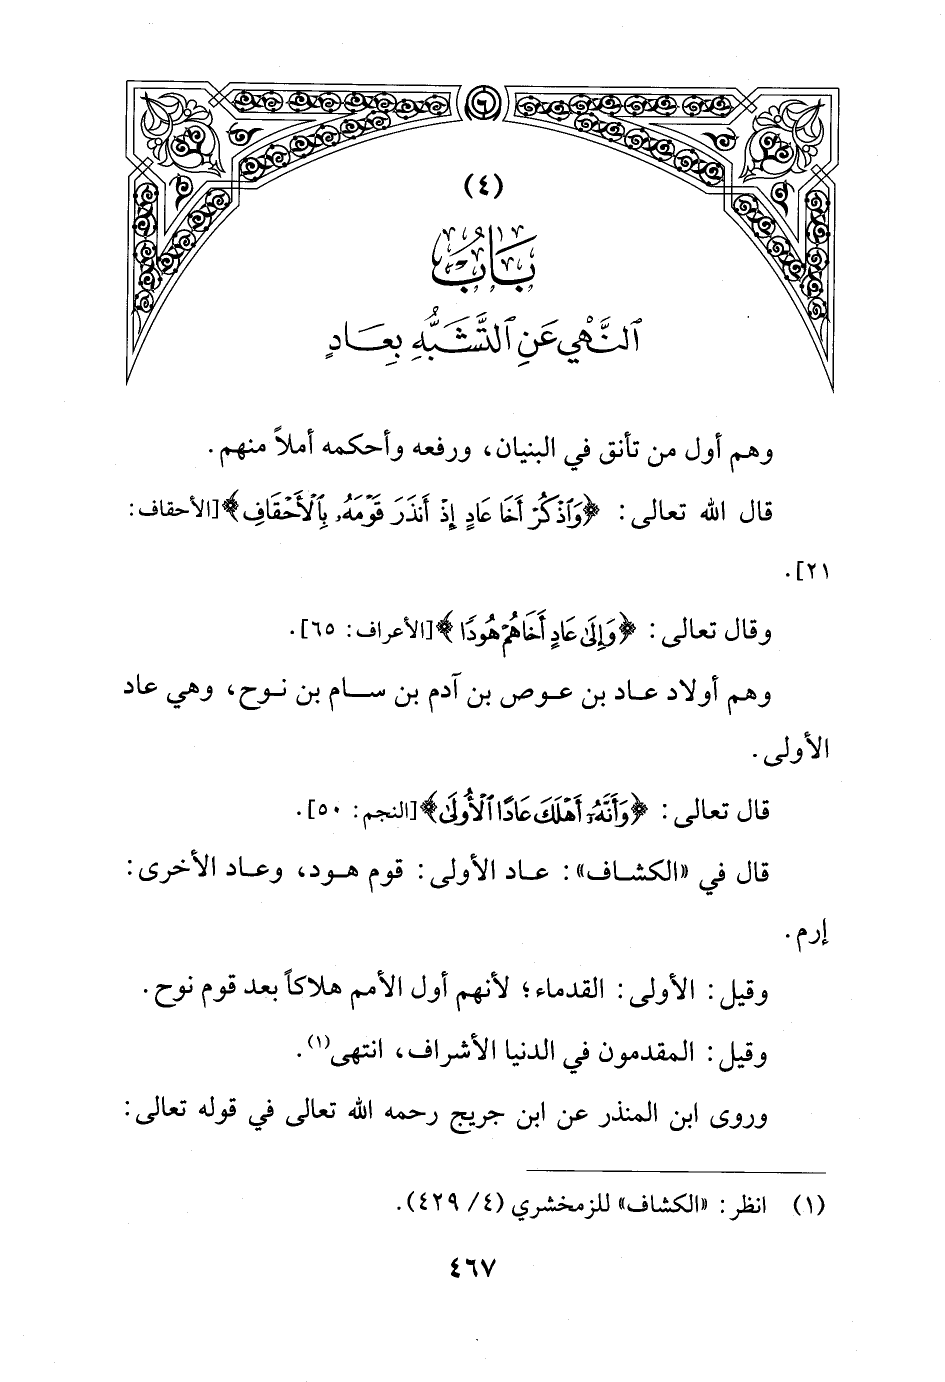 (٤)
بَابُ
النَّهْيِ عَنِ التَّشَبُّهِ بِعَادٍ
وهم أول من تأنق في البنيان، ورفعه وأحكمه أملاً منهم.
قال الله تعالى: ﴿وَٱذْكُرْ أَخَا عَادٍ إِذْ أَنذَرَ قَوْمَهُۥ بِٱلْأَحْقَافِ﴾[الأحقاف:
٢١].
وقال تعالى: ﴿وَإِلَىٰ عَادٍ أَخَاهُمْ هُودًا﴾[الأعراف: ٦٥].
وهم أولاد عاد بن عوص بن آدم بن سام بن نوح، وهي عاد
الأولى.
قال تعالى: ﴿وَأَنَّهُۥٓ أَهْلَكَ عَادًا ٱلْأُولَىٰ﴾[النجم: ٥٠].
قال في «الكشاف»: عاد الأولى: قوم هود، وعاد الأخرى:
إرم.
وقيل: الأولى: القدماء؛ لأنهم أول الأمم هلاكاً بعد قوم نوح.
وقيل: المقدمون في الدنيا الأشراف، انتهى(١).
وروى ابن المنذر عن ابن جريج رحمه الله تعالى في قوله تعالى:
(١) انظر: «الكشاف» للزمخشري (٤/ ٤٢٩).
٤٦٧